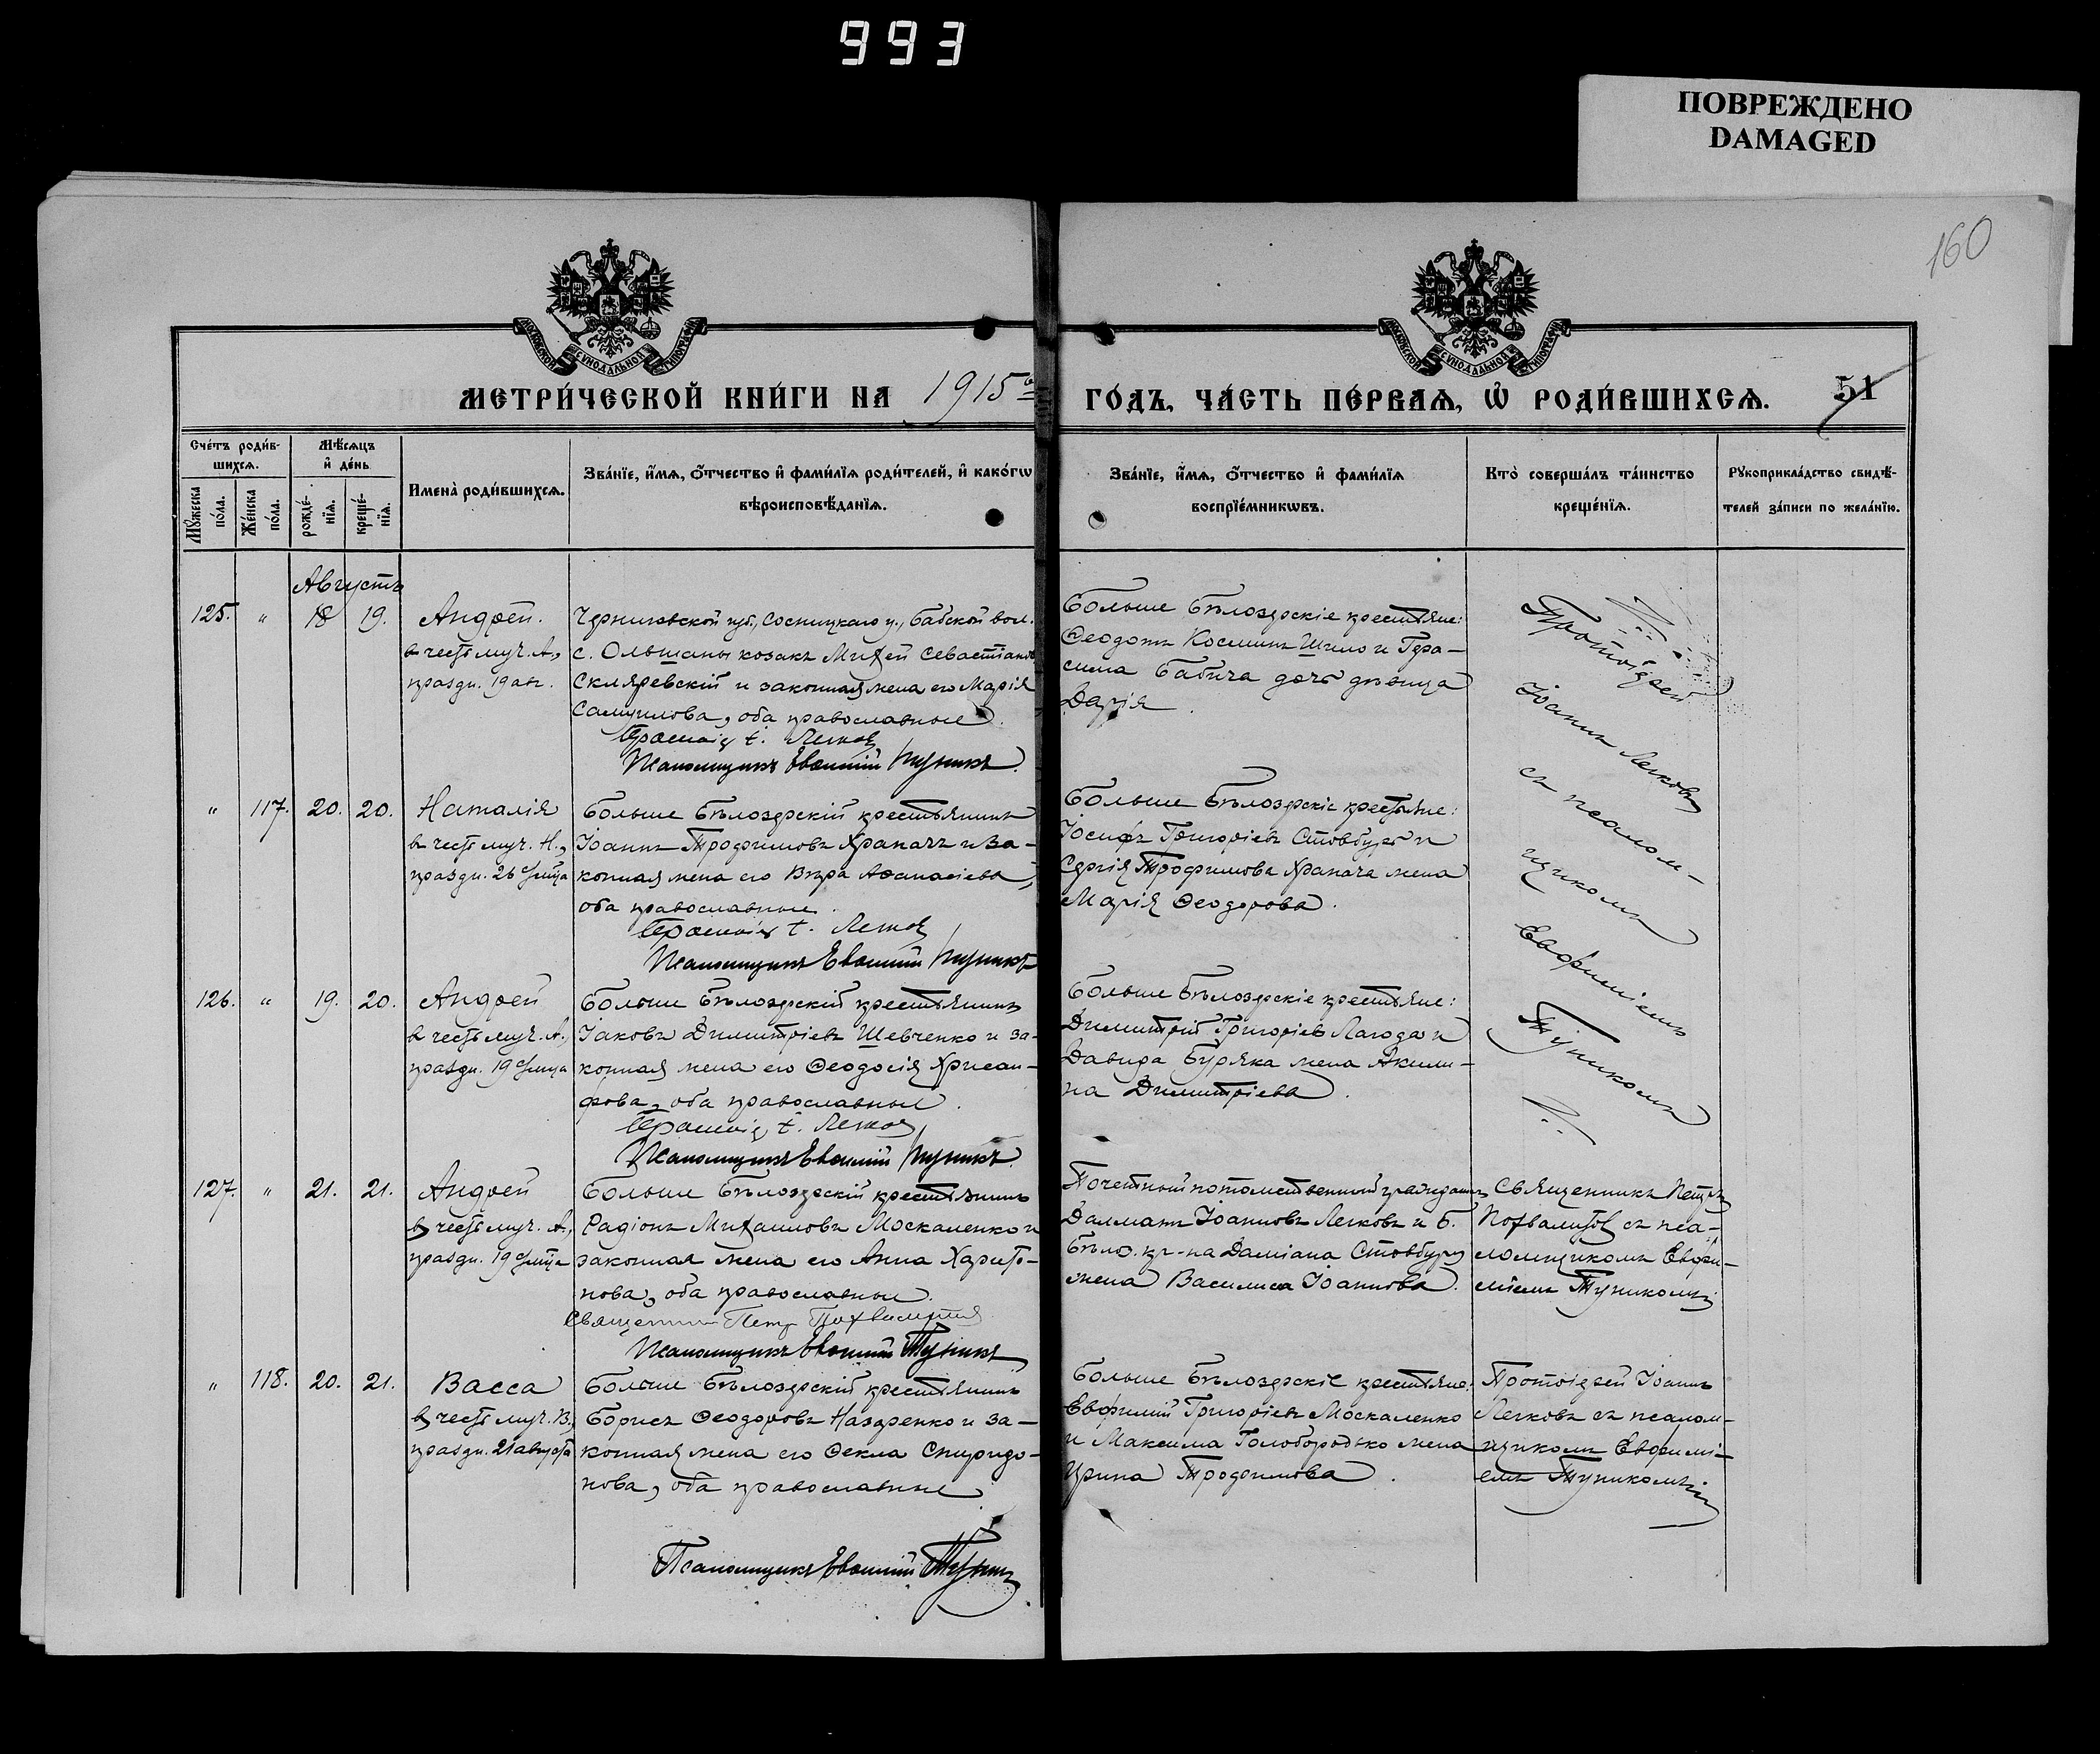 993
ПОВРЕЖДЕНО
DAMAGED
160
МЕТРИ́ЧЕСКОЙ КНИ́ГИ НА 1915й
ГО́ДЪ, ЧА́СТЬ ПЕ́РВАѦ, Ѡ҆ РОДИ́ВШИХСѦ.
51
Сче́тъ роди́в-
шихсѧ.
Мѣ́сѧцъ
и҆ де́нь
Мꙋ́жеска
по́ла.
Же́нска
по́ла.
рожде́-
нїѧ.
креще́-
нїѧ.
Имена̀ роди́вшихсѧ.
Зва́нїе, и҆́мѧ, ѻ҆́тчество и҆ фами́лїѧ роди́телей, и҆ како́гѡ
вѣроисповѣ́данїѧ.
Зва́нїе, и҆́мѧ, ѻ҆́тчество и҆ фами́лїѧ
воспрїе́мникѡвъ.
Кто̀ соверша́лъ та́инство
креще́нїѧ.
Рꙋкоприкла́дство свидѣ́-
телей за́писи по жела́нїю.
Августъ
125. " 18 19. Андрей.
в честь муч. А.,
праздн. 19 авг.
Черниговской губ., Сосницкаго у., Бабской вол.
с. Ольшаны козакъ Михей Севастіановъ
Скляревскій и законная жена его Марія
Самуилова, оба православные.
Протоіер І. Легков
Псаломщикъ Евфимій Пуникъ.
Больше Бѣлозерскіе крестьяне:
Ѳеодотъ Косминъ Шило и Гера-
сима Бабича дочь дѣвица
Дарія.
Протоіерей
Іоаннъ Легковъ
съ псалом-
щикомъ
Евфиміемъ
Пуникомъ
" 117. 20. 20. Наталія
в честь муч. Н.,
праздн. 26 с/мѣца
Больше Бѣлозерскій крестьянинъ
Іоаннъ Трофимовъ Храпачъ и за-
конная жена его Вѣра Аѳанасіева,
оба православные.
Протоіер І. Легков
Псаломщикъ Евфимій Пуникъ
Больше Бѣлозерскіе крестьяне:
Іосифъ Григоріевъ Стовбуръ и
Сергія Трофимова Храпача жена
Марія Ѳеодорова.
126. " 19. 20. Андрей
в честь муч. А.,
праздн. 19 с/мѣца
Больше Бѣлозерскій крестьянинъ
Іаковъ Димитріевъ Шевченко и за-
конная жена его Ѳеодосія Хрисан-
фова, оба православные.
Протоіер І. Легков
Псаломщикъ Евфимій Пуникъ.
Больше Бѣлозерскіе крестьяне:
Димитрій Григоріевъ Лагода и
Давида Буряка жена Акили-
на Димитріева.
127. " 21. 21. Андрей
в честь муч. А.,
праздн. 19 с/мѣца
Больше Бѣлозерскій крестьянинъ
Радіонъ Михаиловъ Москаленко и
законная жена его Анна Харито-
нова, оба православные.
Священник Петр Похвалитов
Псаломщикъ Евфимій Пуникъ
Почетный потомственный гражданинъ
Далматъ Іоанновъ Легковъ и Б.
Бѣлоз. кр-на Даміана Стовбура
жена Василиса Іоаннова.
Священникъ Петръ
Похвалитов съ пса-
ломщикомъ Евфи-
міемъ Пуникомъ
" 118. 20. 21. Васса
в честь муч. В.,
праздн. 21 августа
Больше Бѣлозерскій крестьянинъ
Борисъ Ѳеодоровъ Назаренко и за-
конная жена его Ѳекла Спиридо-
нова, оба православные
Псаломщикъ Евфимій Пуникъ
Больше Бѣлозерскіе крестьяне:
Евфимій Григоріевъ Москаленко
и Максима Голобородько жена
Ирина Трофимова.
Протоіерей Іоаннъ
Легковъ съ псалом-
щикомъ Евфимі-
емъ Пуникомъ